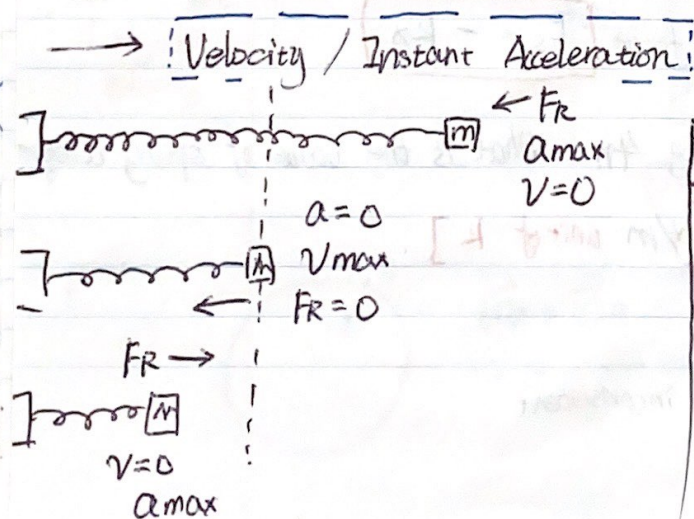 → Velocity / Instant Acceleration
m ← FR
amax
V=0
a=0
m Vmax
← FR=0
FR →
m
V=0
amax